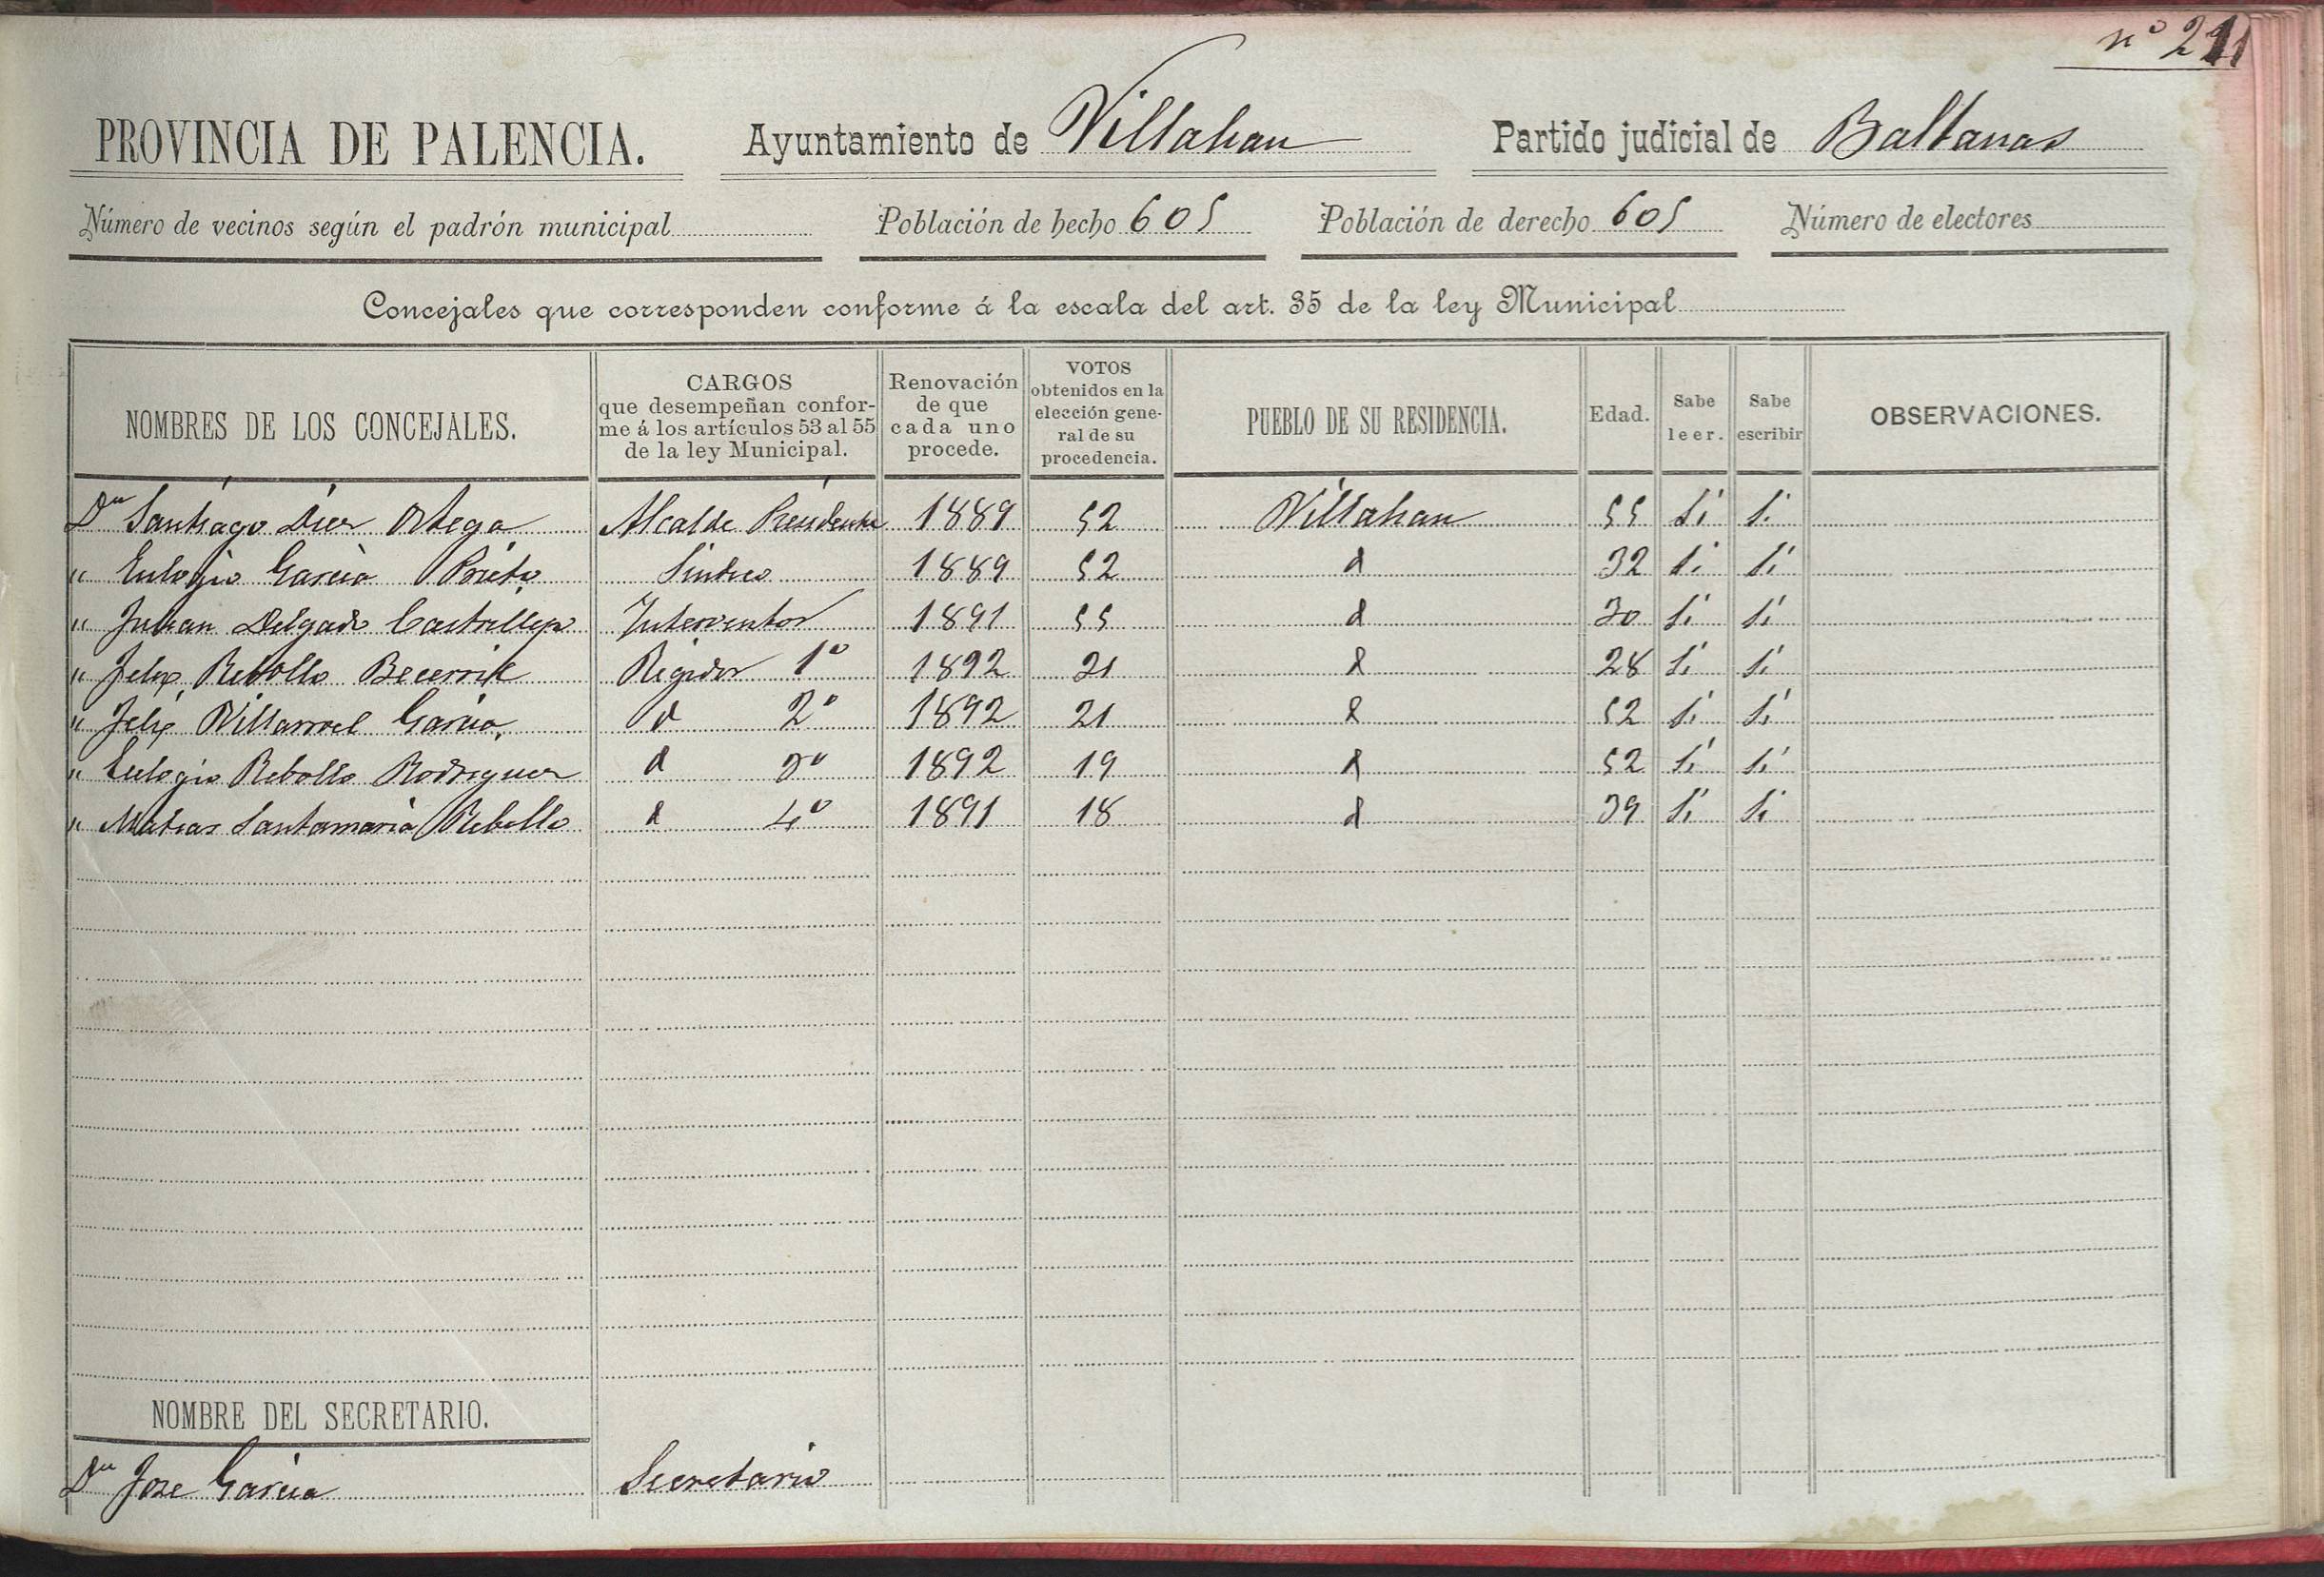 nº 211
PROVINCIA DE PALENCIA. Ayuntamiento de Villahan Partido judicial de Baltanas
Número de vecinos según el padrón municipal Población de hecho 605 Población de derecho 605 Número de electores
Concejales que corresponden conforme á la escala del art. 35 de la ley Municipal
NOMBRES DE LOS CONCEJALES.
CARGOS
que desempeñan confor-
me á los artículos 53 al 55
de la ley Municipal.
Renovación
de que
cada uno
procede.
VOTOS
obtenidos en la
elección gene-
ral de su
procedencia.
PUEBLO DE SU RESIDENCIA.
Edad.
Sabe
leer.
Sabe
escribir
OBSERVACIONES.
Dn Santiago Dier Ortega Alcalde Presidente 1889 52 Villahan 55 Si Si
" Eulogio Garcia Prieto Sindico 1889 52 d 32 Si Si
" Julian Delgado Castrillejo Interventor 1891 55 d 30 Si Si
" Felix Rebollo Becerril Regidor 1º 1892 21 d 28 Si Si
" Felix Villarroel Garcia d 2º 1892 21 d 52 Si Si
" Eulogio Rebollo Rodriguez d 3º 1892 19 d 52 Si Si
" Matias Santamaria Rebollo d 4º 1891 18 d 39 Si Si
NOMBRE DEL SECRETARIO.
Dn Jose Garcia Secretario